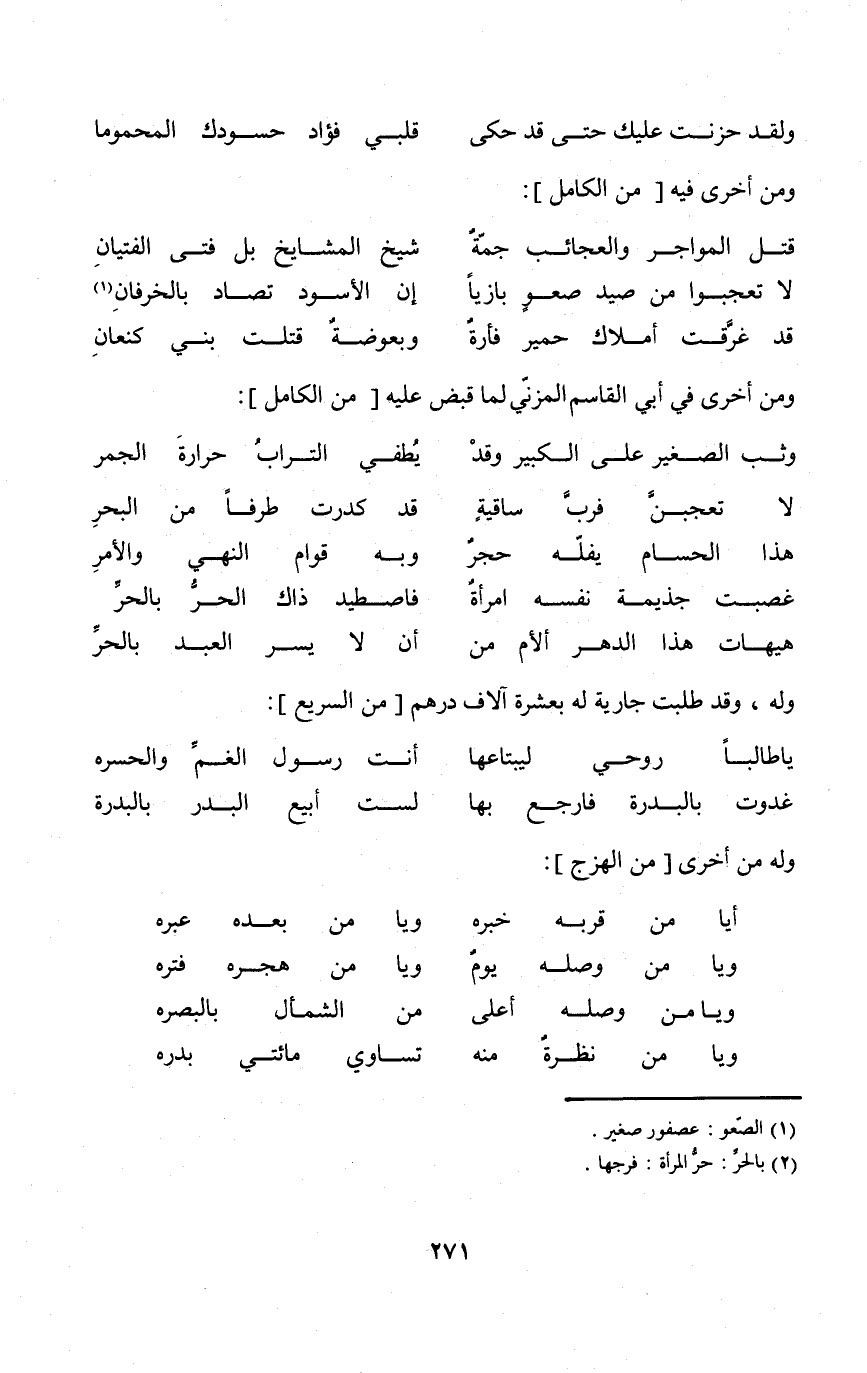 ولقد حزنت عليك حتى قد حكى قلبي فؤاد حسودك المحموما
ومن أخرى فيه [ من الكامل ]:
قتل المواجر والعجائب جمّةٌ شيخ المشايخ بل فتى الفتيانِ
لا تعجبوا من صيد صعوٍ بازياً إن الأسود تصاد بالخرفانِ(١)
قد غرَّقت أملاك حمير فأرةٌ وبعوضةٌ قتلت بني كنعانِ
ومن أخرى في أبي القاسم المزنّي لما قبض عليه [ من الكامل ]:
وثب الصغير على الكبير وقدْ يُطفي الترابُ حرارةَ الجمر
لا تعجبنَّ فربَّ ساقيةٍ قد كدرت طرفاً من البحرِ
هذا الحسام يفلّه حجرٌ وبه قوام النهي والأمرِ
غصبت جذيمة نفسه امرأةٌ فاصطيد ذاك الحرُّ بالحرِّ
هيهات هذا الدهر ألأم من أن لا يسر العبد بالحرِّ
وله ، وقد طلبت جارية له بعشرة آلاف درهم [ من السريع ]:
ياطالباً روحي ليبتاعها أنت رسول الغمِّ والحسره
غدوت بالبدرة فارجع بها لست أبيع البدر بالبدرة
وله من أخرى [ من الهزج ]:
أيا من قربه خبره ويا من بعده عبره
ويا من وصله يومٌ ويا من هجره فتره
ويامن وصله أعلى من الشمأل بالبصره
ويا من نظرةٌ منه تساوي مائتي بدره
(١) الصّعو : عصفور صغير .
(٢) بالحرِّ : حرُّ المرأة : فرجها .
٢٧١